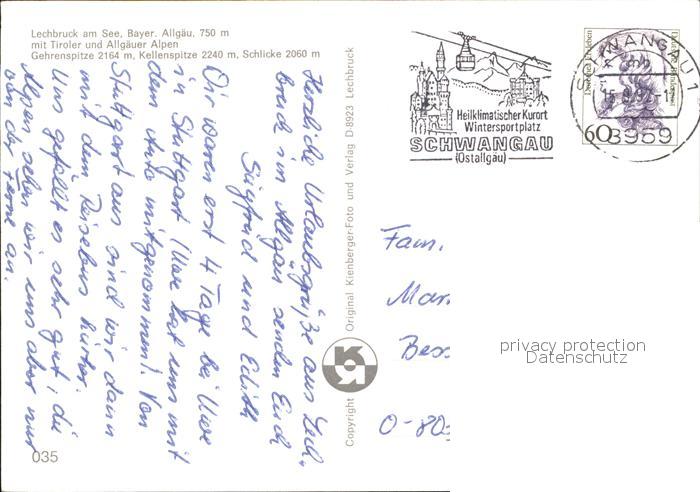 Lechbruck am See, Bayer. Allgäu, 750 m
mit Tiroler und Allgäuer Alpen
Gehrenspitze 2164 m, Kellenspitze 2240 m, Schlicke 2060 m
Herzliche Urlaubsgrüße aus Lech-
bruck im Allgäu senden Euch
Siegfried und Edith
Wir waren erst 4 Tage bei Uwe
in Stuttgart (Uwe hat uns mit
dem Auto mitgenommen). Von
Stuttgart aus sind wir dann
mit dem Reisebus hierher.
Uns gefällt es sehr gut, die
Alpen sehen wir uns aber nur
von der Ferne an.
035
Copyright Original Kienberger-Foto und Verlag D-8923 Lechbruck
Heilklimatischer Kurort
Wintersportplatz
SCHWANGAU
(Ostallgäu)
SCHWANGAU 1
8959
60
Fam.
Mar
Bes
O-80
privacy protection
Datenschutz